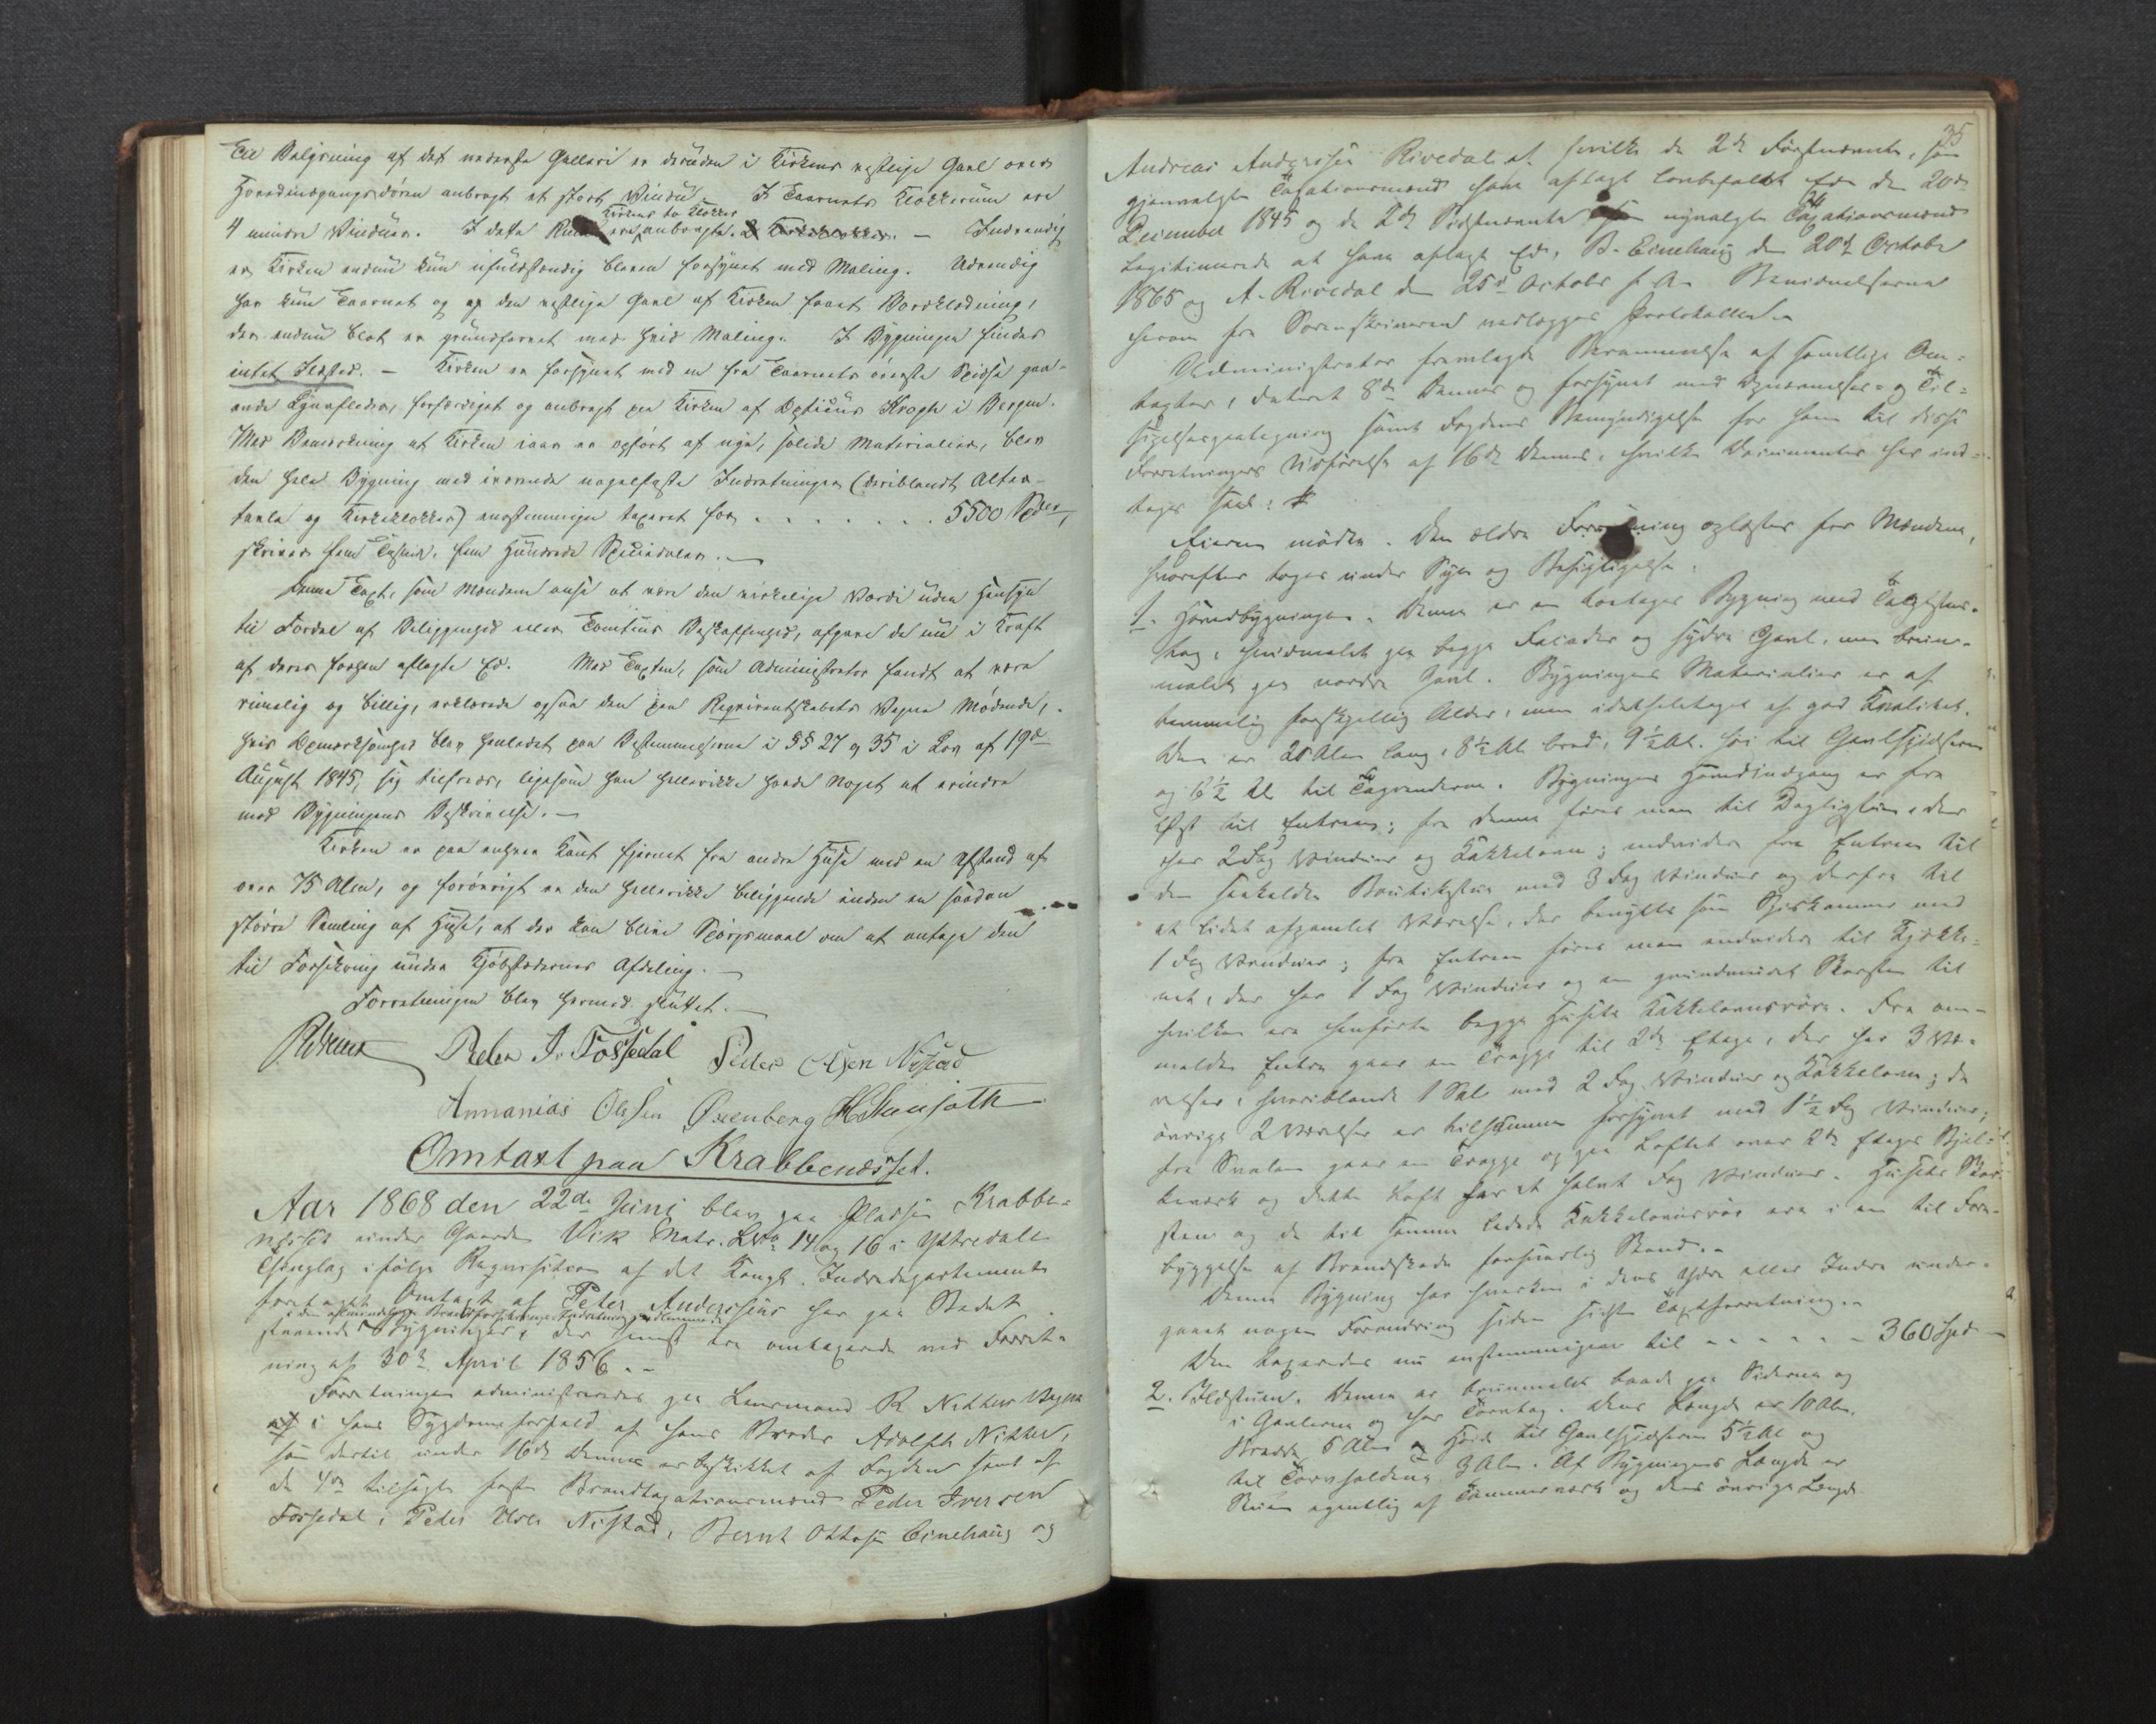 Til Belysning af det nederste Galleri er desuden i Kirkens vestlige Gavl over
Hovedindgangsdøren anbragt et stort Vindu. I Taarnets Klokkerum ere
4 mindre Vinduer. I dette Rum ere Kirkens to Klokker anbragte. – Indvendig
er Kirken endnu kun ufuldstændig bleven forsynet med Maling. Udvendig
har kun Taarnet og den vestlige Gavl af Kirken faaet Bordklædning,
der endnu blot er grundfarvet med hvid Maling. I Bygningen findes
intet Ildsted. – Kirken er forsynet med en fra Taarnets øverste Spidse gaa-
ende Lynafleder, forfærdiget og anbragt paa Kirken af Opticus Krogh i Bergen.
Med Bemærkning at Kirken iaar er opført af nye, solide Materialier, blev
den hele Bygning med iværende nagelfaste Indretninger (deriblandt Alter-
tavle og Kirkeklokker) eenstemmigen taxeret for . . . . . . . 5500 Spdlr,
skriver fem Tusinde, fem Hundrede Speciedaler. –
Denne Taxt, som Mændene ansee at være den virkelige Værdi uden Hensyn
til Fordel af Beliggenhed eller Tomtens Beskaffenhed, afgave de nu i Kraft
af deres forhen aflagte Ed. Med Taxten, som Administrator fandt at være
rimelig og billig, erklærede ogsaa den paa Reqvirentskabets Vegne Mødende,
hvis Opmærksomhed blev henledet paa Bestemmelserne i §§ 27 og 35 i Lov af 19de
August 1845, sig tilfreds, ligesom han hellerikke havde Noget at erindre
mod Bygningens Beskrivelse. –
Kirken er paa enhver Kant fjernet fra andre Huse med en Afstand af
over 75 Alen, og forøvrigt er den hellerikke beliggende inden en saadan
større Samling af Huse, at der kan blive Spørgsmaal om at antage den
til Forsikring under Kjøbstædernes Afdeling. –
Forretningen blev hermed sluttet. –
Peder I. Fossedal Peder Olsen Nistad
Annanias Olsen Øxenberg
Omtaxt paa Krabbenæsset.
Aar 1868 den 22de Juni blev paa Pladsen Krabbe-
næsset under Gaarden Vik Matr. LNo 14 og 16 i Yttredals
Thinglag ifølge Reqvisition af det Kongl. Indredepartement
foretaget Omtaxt af Peter Anderssens her paa Stedet
i den almindelige Brandforsikrings Indretning indlemmede
staaende Bygninger, der sidst ere omtaxerede ved Forret-
ning af 30te April 1856. –
Forretningen administreredes paa Lensmand R. Nitter Vegne
i hans Sygdomsforfald af hans Broder Adolph Nitter,
som dertil under 16de Dennes er beskikket af Fogden samt af
de 4re tilsagte faste Brandtaxationsmænd Peder Iversen
Fossedal, Peder Olsen Nistad, Bernt Ottesen Einehaug og
35
Andreas Anderssen Rivedal, af hvilke de 2de Førstnævnte, som
gjenvalgte Taxationsmænd have aflagt lovbefalet Ed den 20de
December 1845 og de 2de Sidstnævnte som nyvalgte Taxationsmænd
legitimerede at have aflagt Ed, B. Einehaug den 20de October
1865 og A. Rivedal den 25de October s. A. Bevidnelserne
herom fra Sorenskriveren vedlægges Protokollen. –
Administrator fremlagde Berammelse af samtlige Om-
taxter, dateret 8de Dennes og forsynet med Opnævnelses- og Til-
sigelsespaategning samt Fogdens Bemyndigelse for ham til disse
Forretningers Udførelse af 16de Dennes, hvilke Documenter her ind-
tages saal:
Eieren mødte. Den ældre Forretning oplæstes for Mændene,
hvorefter toges under Syn og Besigtigelse:
1. Hovedbygningen. Denne er en toetages Bygning med Taglsteens-
tag, hvidmalet paa begge Facader og søndre Gavl, men bruun-
malet paa nordre Gavl. Bygningens Materialier er af
temmelig forskjellig Alder, men idetheletaget af god Kvalitet.
Den er 20 Alen lang, 8½ Al. bred, 9½ Al. høi til Gavlspidserne
og 6½ Al til Tagrenderne. Bygningens Hovedindgang er fra
Øst til Entreen; fra denne føres man til Dagligstuen, der
har 2 Fag Vinduer og Kakkelovn; endvidere fra Entreen til
den saakaldte Boutikstue med 3 Fag Vinduer og derfra til
et lidet afpanelet Værelse, der benyttes som Spiskammer med
1 Fag Vinduer; fra Entreen føres man endvidere til Kjøkke-
net, der har 1 Fag Vinduer og en grundmuret Skorsten til
hvilken ere henførte begge Husets Kakkelovnsrør. Fra om-
meldte Entre gaar en Trappe til 2den Etage, der har 3 Væ-
relser, hvoriblandt 1 Sal med 2 Fag Vinduer og Kakkelovn; de
øvrige 2 Værelser er tilsammen forsynet med 1½ Fag Vinduer;
fra Svalen gaar en Trappe op paa Loftet over 2den Etages Bjel-
keværk og dette Loft har et halvt Fag Vinduer. Husets Skor-
sten og de til samme ledede Kakkelovnsrør ere i en til Fore-
byggelse af Brandskade forsvarlig Stand. –
Denne Bygning har hverken i dens Ydre eller Indre under-
gaaet nogen Forandring siden sidste Taxtforretning. –
Den taxeredes nu enstemmigen til – – – – – – 360 Spd –
2. Ildstuen. Denne er bruunmalet baade paa Siderne og
i Gavlerne og har Torvtag. Dens Længde er 10 Alen,
Bredde 6 Alen og Høide til Gavlspidserne 5½ Al og
til Torvholdene 3 Alen. Af Bygningens Længde er
Stuen egentlig af Tømmerværk og dens øvrige Længde